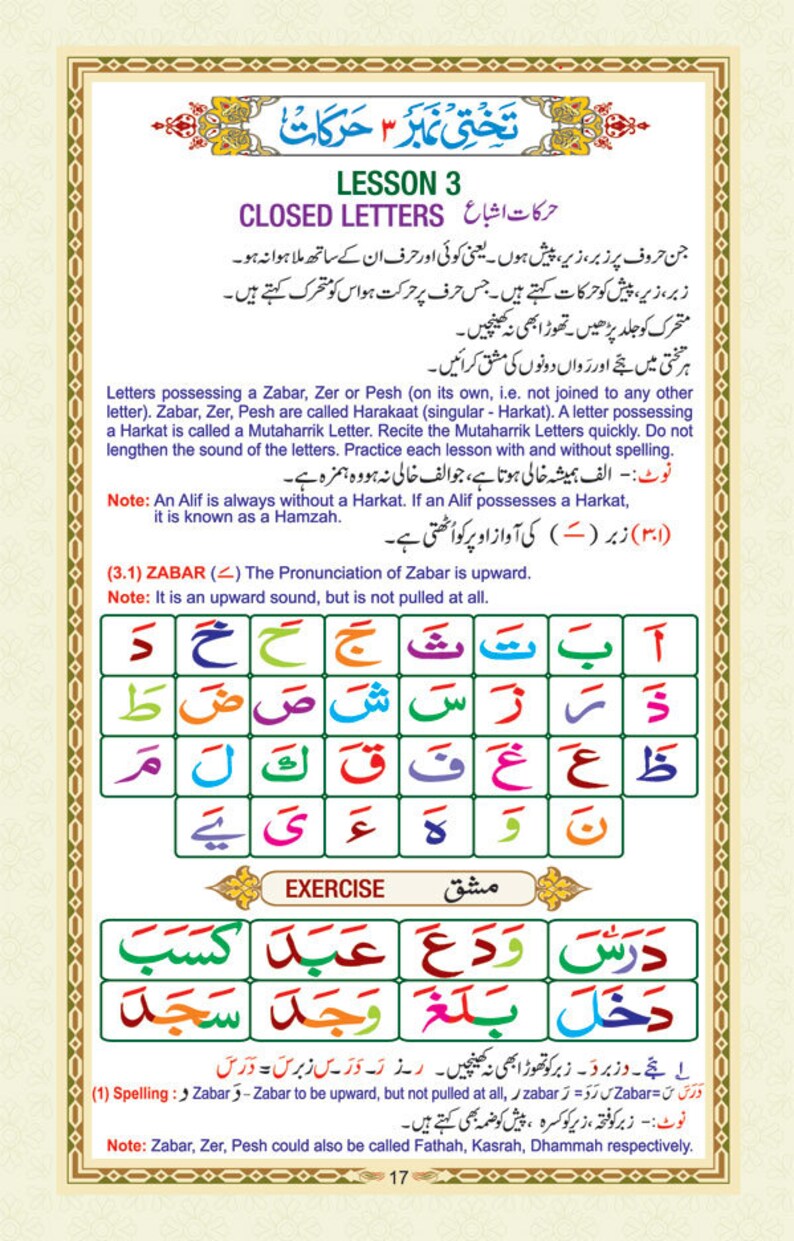 تختی نمبر ۳ حرکات
LESSON 3
CLOSED LETTERS حرکات اشباع
جن حروف پر زبر، زیر، پیش ہوں۔ یعنی کوئی اور حرف ان کے ساتھ ملا ہوا نہ ہو۔
زبر، زیر، پیش کو حرکات کہتے ہیں۔ جس حرف پر حرکت ہو اس کو متحرک کہتے ہیں۔
متحرک کو جلد پڑھیں۔ تھوڑا بھی نہ کھینچیں۔
ہر تختی میں ہجے اور رَواں دونوں کی مشق کرائیں۔
Letters possessing a Zabar, Zer or Pesh (on its own, i.e. not joined to any other
letter). Zabar, Zer, Pesh are called Harakaat (singular - Harkat). A letter possessing
a Harkat is called a Mutaharrik Letter. Recite the Mutaharrik Letters quickly. Do not
lengthen the sound of the letters. Practice each lesson with and without spelling.
نوٹ:- الف ہمیشہ خالی ہوتا ہے، جو الف خالی نہ ہو وہ ہمزہ ہے۔
Note: An Alif is always without a Harkat. If an Alif possesses a Harkat,
it is known as a Hamzah.
(۳.۱) زبر (ـَ) کی آواز اوپر کو اُٹھتی ہے۔
(3.1) ZABAR (ـَ) The Pronunciation of Zabar is upward.
Note: It is an upward sound, but is not pulled at all.
اَ بَ تَ ثَ جَ حَ خَ دَ
ذَ رَ زَ سَ شَ صَ ضَ طَ
ظَ عَ غَ فَ قَ كَ لَ مَ
نَ وَ هَ ءَ یَ یَے
EXERCISE مشق
دَرَسَ وَدَعَ عَبَدَ كَسَبَ
دَخَلَ بَلَغَ وَجَدَ سَجَدَ
۱ ہجے۔ د زبر دَ۔ زبر کو تھوڑا بھی نہ کھینچیں۔ ر۔ ز رَ۔ دَرَ۔ س زبر سَ = دَرَسَ
(1) Spelling : و Zabar وَ – Zabar to be upward, but not pulled at all, ر zabar رَ = دَرَ س Zabar= سَ دَرَسَ
نوٹ:- زبر کو فتحہ، زیر کو کسرہ، پیش کو ضمہ بھی کہتے ہیں۔
Note: Zabar, Zer, Pesh could also be called Fathah, Kasrah, Dhammah respectively.
17